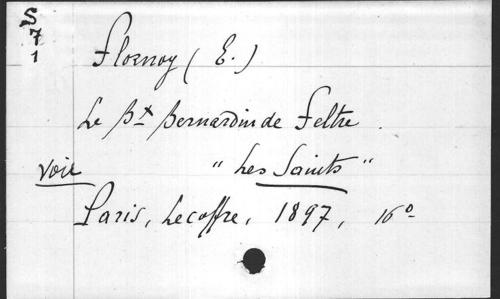 S
7
1
Flornoy (E.)
Le Bx Bernardin de Feltre.
voir "Les Saints"
Paris, Lecoffre, 1897, 16o